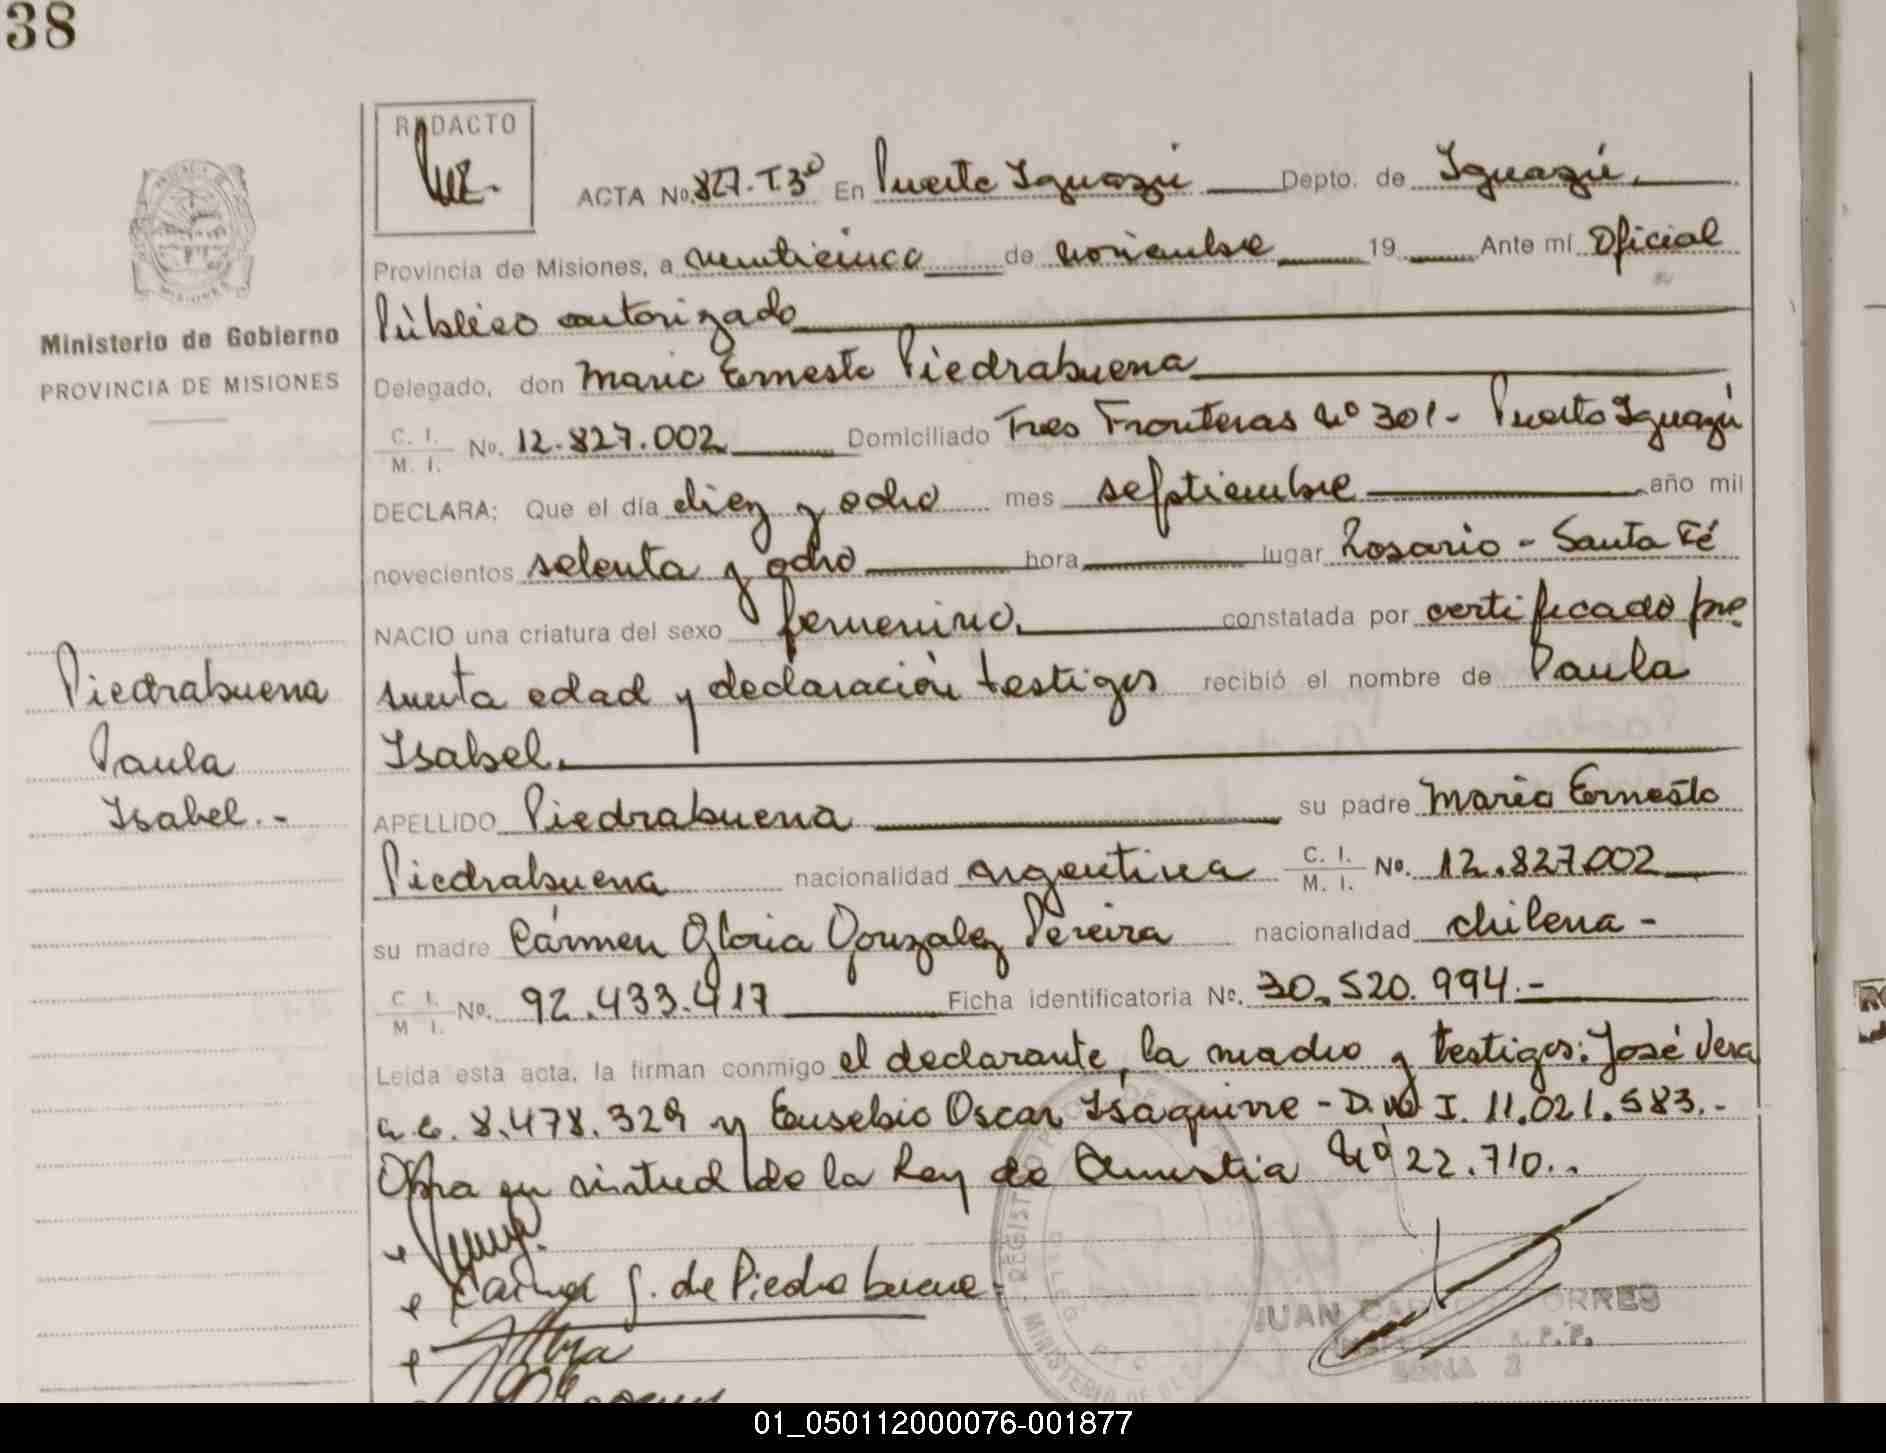 38
REDACTO
ACTA No. 827. T.3º En Puerto Iguazú Depto. de Iguazú.
Provincia de Misiones, a veinticinco de noviembre 19 Ante mí Oficial
Público autorizado
Delegado, don Mario Ernesto Piedrabuena
C. I. M. I. No. 12.827.002 Domiciliado Tres Fronteras Nº 301- Puerto Iguazú
DECLARA: Que el día diez y ocho mes septiembre año mil
novecientos setenta y ocho hora lugar Rosario - Santa Fé
NACIO una criatura del sexo femenino. constatada por certificado pre
sunta edad y declaración testigos recibió el nombre de Paula
Isabel.
APELLIDO Piedrabuena su padre Mario Ernesto
Piedrabuena nacionalidad argentina C. I. M. I. No. 12.827.002
su madre Cármen Gloria Gonzalez Pereira nacionalidad chilena -
C. I. M I. No. 92.433.417 Ficha identificatoria No. 30.520.994.-
Leída esta acta, la firman conmigo el declarante, la madre y testigos: José Vera
8.478.329 y Eusebio Oscar Isaguirre - D.N.I. 11.021.583.-
Obra en virtud de la Ley de Amnistia Nº 22.710..
Carmen G. de Piedrabuena
JUAN CARLOS TORRES
ZONA 2
MISIONES
Ministerio de Gobierno
PROVINCIA DE MISIONES
Piedrabuena
Paula
Isabel.-
01_050112000076-001877